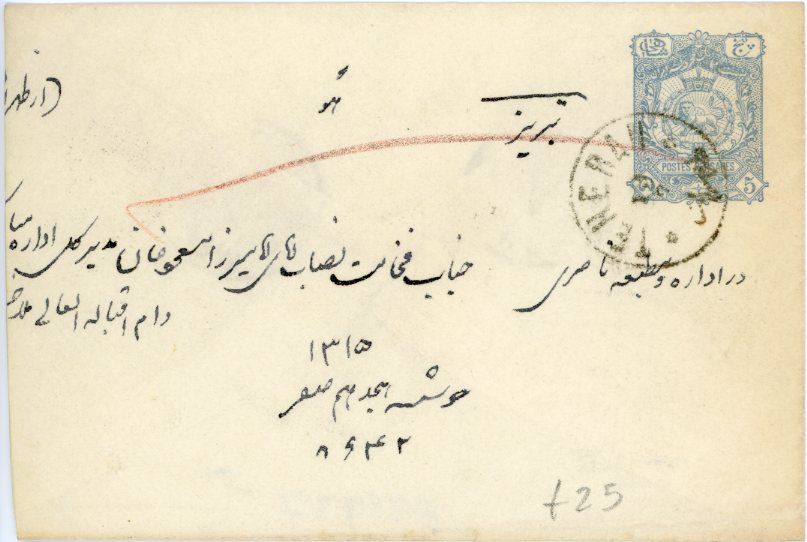 پنج
POSTES PERSANES
5
TEHERAN
(از طهران
هو
تبریز
در اداره مطبعه ناصری
جناب فخامت نصاب آقای آقا میرزا خان مدیر کل اداره
دام اقباله العالی
۱۳۱۵
هجدهم صفر
۸۶۴۲
+25